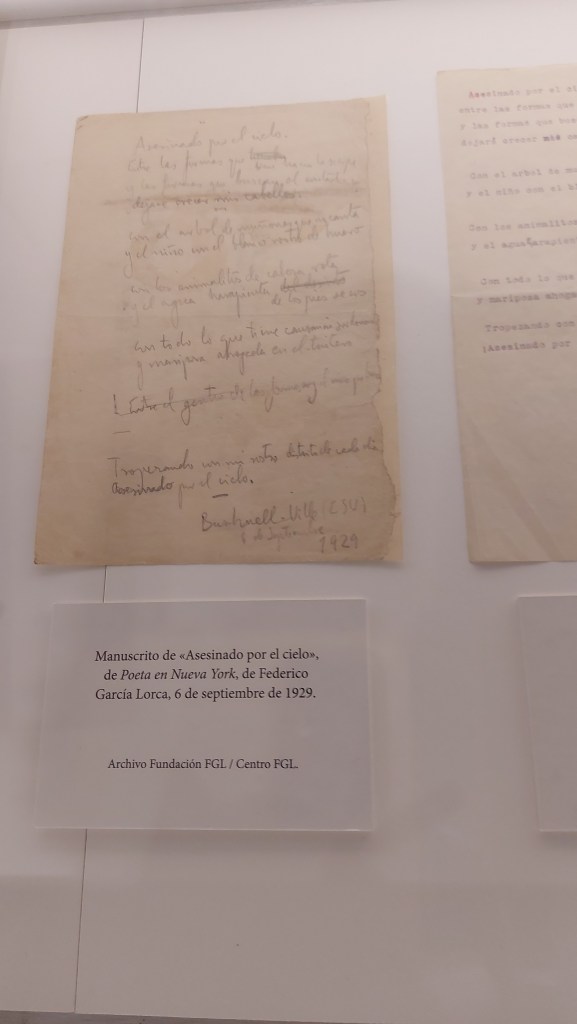 Asesinado por el cielo.
Entre las formas que van hacia la sierpe
y las formas que buscan el cristal
dejaré crecer mis cabellos.
con el arbol de muñones que no canta
y el niño con el blanco rostro de huevo
con los animalitos de cabeza rota
y el agua harapienta
de los pies secos
con todo lo que tiene cansancio
y mariposa ahogada en el tintero
Entre el
Tropezando con mi rostro distinto de cada día
Asesinado por el cielo.
(ESU)
6 de Septiembre
1929
Manuscrito de «Asesinado por el cielo»,
de Poeta en Nueva York, de Federico
García Lorca, 6 de septiembre de 1929.
Archivo Fundación FGL / Centro FGL.
Asesinado por el ci
entre las formas que
y las formas que bus
dejaré crecer mis
Con el arbol de mu
y el niño con el bl
Con los animalitos
y el agua harapien
Con todo lo que
y mariposa ahoga
Tropezando con
¡Asesinado por